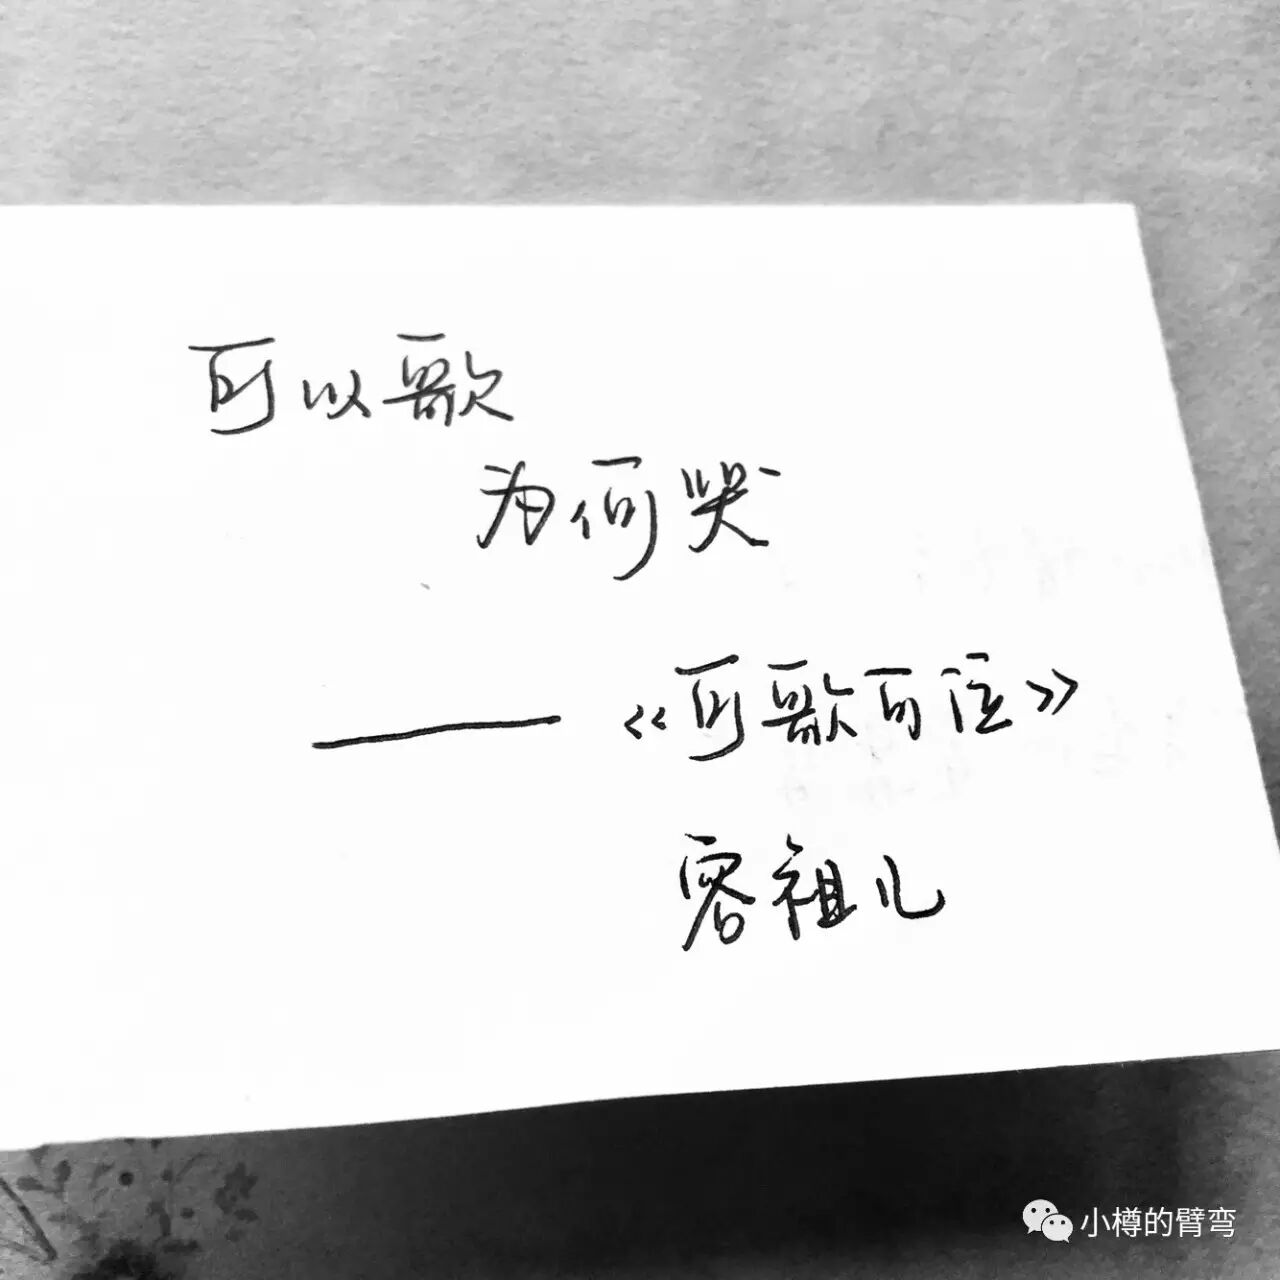 可以歌
为何哭
——《可歌可泣》
容祖儿
小樽的臂弯